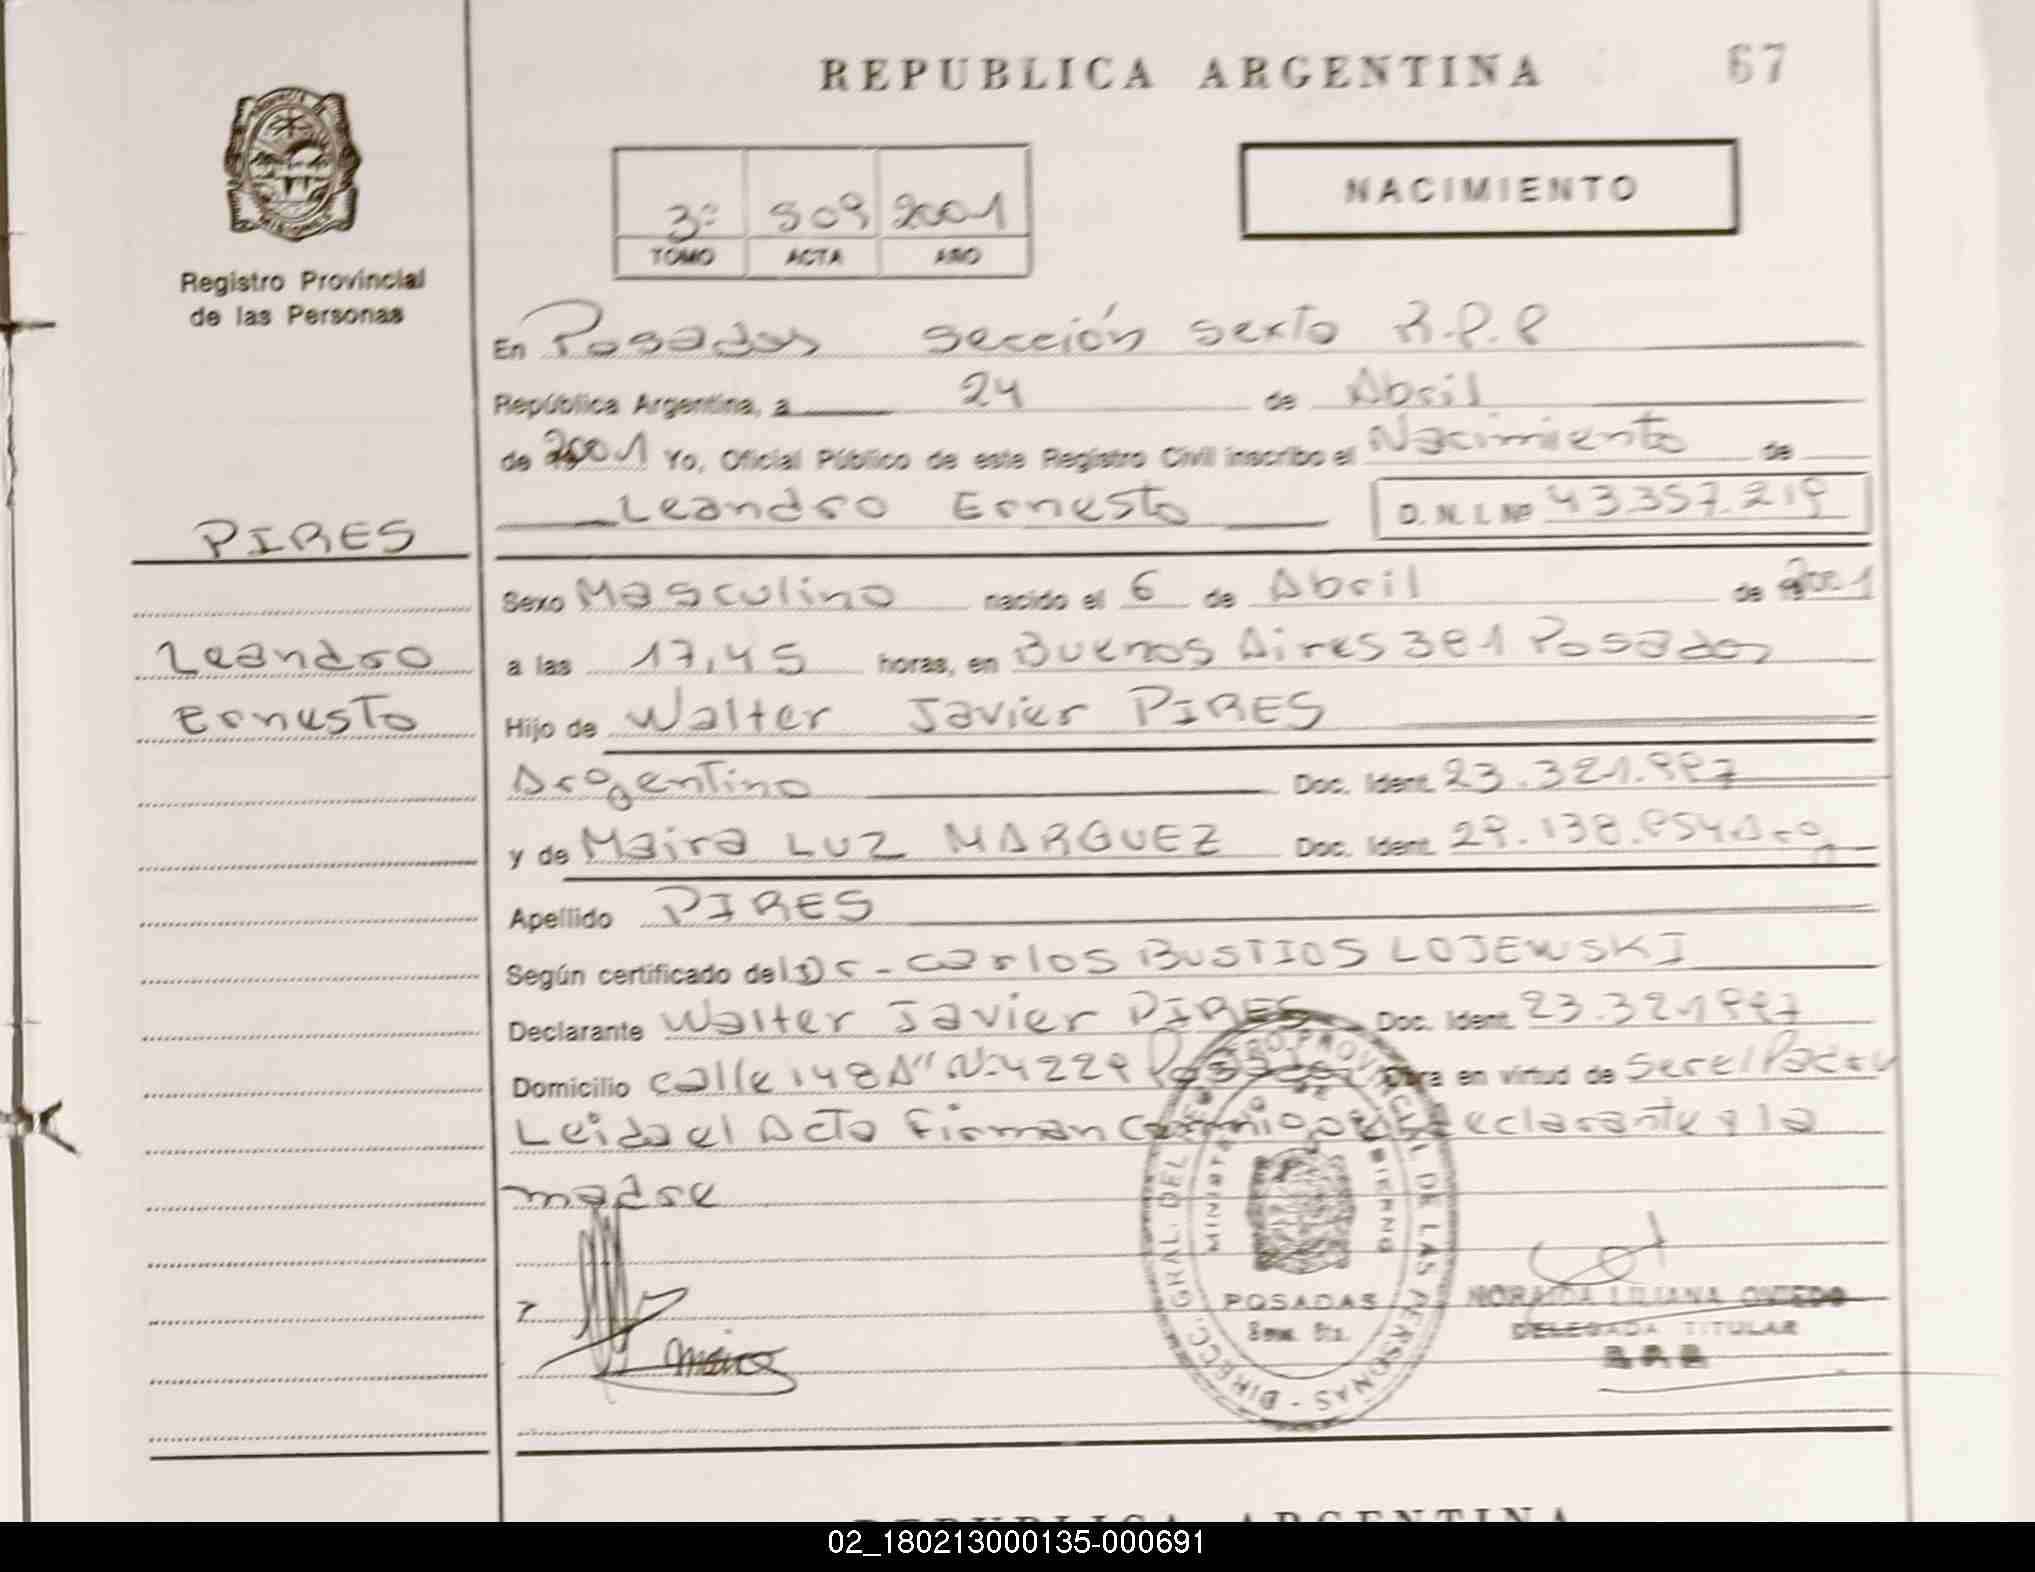 REPUBLICA ARGENTINA 67
Registro Provincial
de las Personas
3º 509 2001
TOMO ACTA AÑO
NACIMIENTO
En Posadas sección sexto R.P.P
República Argentina, a 24 de Abril
de 2001 Yo, Oficial Público de este Registro Civil inscribo el Nacimiento de
Leandro Ernesto D.N.I. Nº 43.357.219
PIRES
Leandro
Ernesto
Sexo Masculino nacido el 6 de Abril de 2001
a las 17,45 horas, en Buenos Aires 381 Posadas
Hijo de Walter Javier PIRES
Argentino Doc. Ident. 23.321.997
y de Maira LUZ MARQUEZ Doc. Ident. 29.138.954 Arg
Apellido PIRES
Según certificado del Dr. Carlos BUSTIOS LOJEWSKI
Declarante Walter Javier PIRES Doc. Ident. 23.321997
Domicilio calle 148 A" Nº 4229 Posadas Obra en virtud de ser el Padre
Leida el Acta Firman conmigo el Declarante y la
madre
Maira
DIRECC. GRAL. DEL REGISTRO PROVINCIAL DE LAS PERSONAS
MINISTERIO DE GOBIERNO
POSADAS
NORAIDA LILIANA OVIEDO
DELEGADA TITULAR
REPUBLICA ARGENTINA
02_180213000135-000691